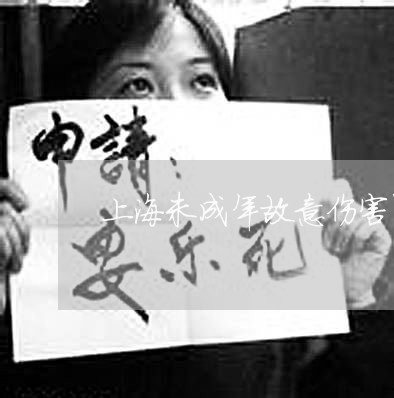 申請：
上海未成年故意伤害
安乐死